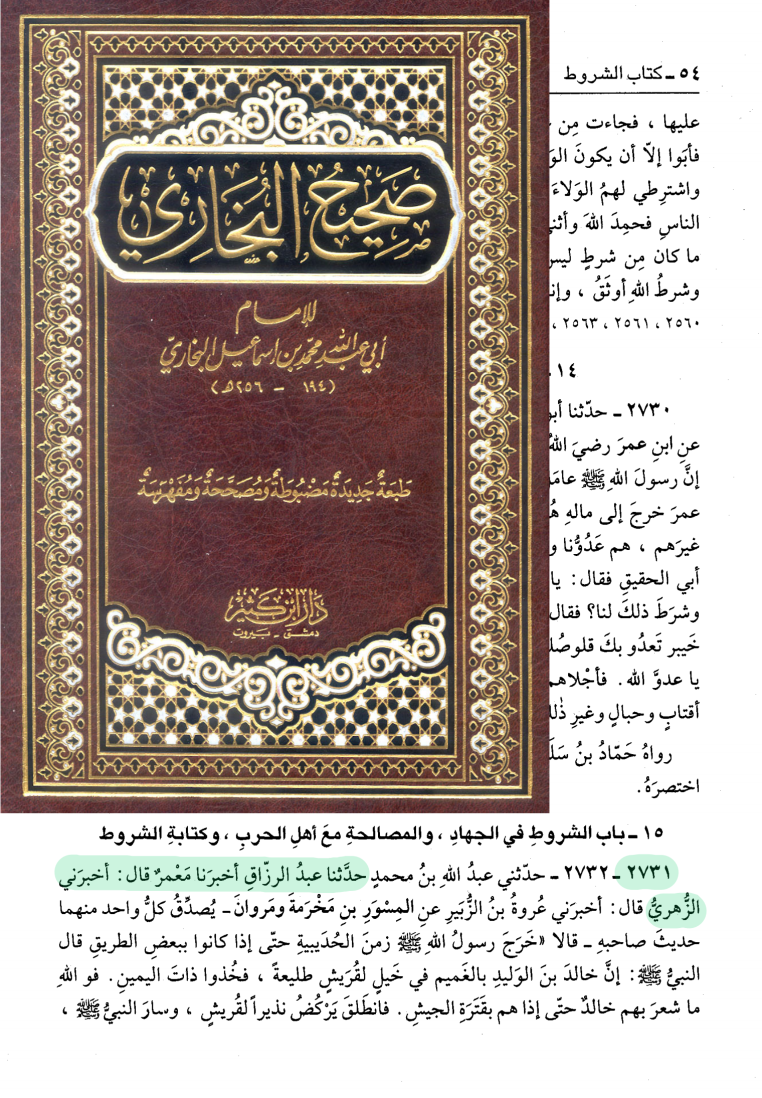 صَحِيحُ البُخَارِي
للإمام
أبي عبد الله محمد بن إسماعيل البخاري
(١٩٤ - ٢٥٦هـ)
طَبعَةٌ جَدِيدَةٌ مَضبُوطَةٌ وَمُصَحَّحَةٌ وَمُفَهرَسَةٌ
دَارُ ابْن كَثِير
دمشق - بيروت
٥٤ ـ كتاب الشروط
عليها ، فجاءت مِن
فأبَوا إلّا أن يكونَ
واشترِطي لهمُ الوَلاءَ
الناسِ فحمِدَ اللهَ
ما كان مِن شرطٍ
وشرطُ اللهِ أوثَقُ ،
٢٥٦٠ ، ٢٥٦١ ، ٢٥٦٣ ،
١٤
٢٧٣٠ ـ حدّثنا
عنِ ابنِ عمرَ رضيَ
إنَّ رسولَ اللهِ ﷺ
عمرَ خرجَ إلى مالهِ
غيرَهم ، هم عَدُوُّنا
أبي الحقيقِ فقال : يا
وشرَطَ ذلكَ لنا؟ فقال
خَيبر تَعدُو بكَ
يا عدوَّ الله . فأجْلاهم
أقتابٍ وحبالٍ وغيرِ
رواهُ حَمّادُ بنُ
اختصرَهُ .
١٥ ـ باب الشروطِ في الجهادِ ، والمصالحةِ معَ أهلِ الحربِ ، وكتابةِ الشروط
٢٧٣١ ـ ٢٧٣٢ ـ حدّثني عبدُ اللهِ بنُ محمدٍ حدَّثنا عبدُ الرزّاقِ أخبرَنا مَعْمرٌ قال : أخبرَني
الزُّهريُّ قال : أخبرَني عُروةُ بنُ الزُّبَيرِ عنِ المِسْوَرِ بنِ مَخْرَمةَ ومَروانَ ـ يُصدِّقُ كلُّ واحد منهما
حديثَ صاحبهِ ـ قالا «خَرَجَ رسولُ اللهِ ﷺ زمنَ الحُدَيبيةِ حتّى إذا كانوا ببعضِ الطريقِ قال
النبيُّ ﷺ : إنَّ خالدَ بنَ الوَليدِ بالغَميم في خَيلٍ لقُرَيشٍ طليعةً ، فخُذوا ذاتَ اليمينِ . فو اللهِ
ما شعرَ بهم خالدٌ حتّى إذا هم بقَتَرَةِ الجيشِ . فانطلَقَ يَرْكُضُ نذيراً لقُريشٍ ، وسارَ النبيُّ ﷺ ،